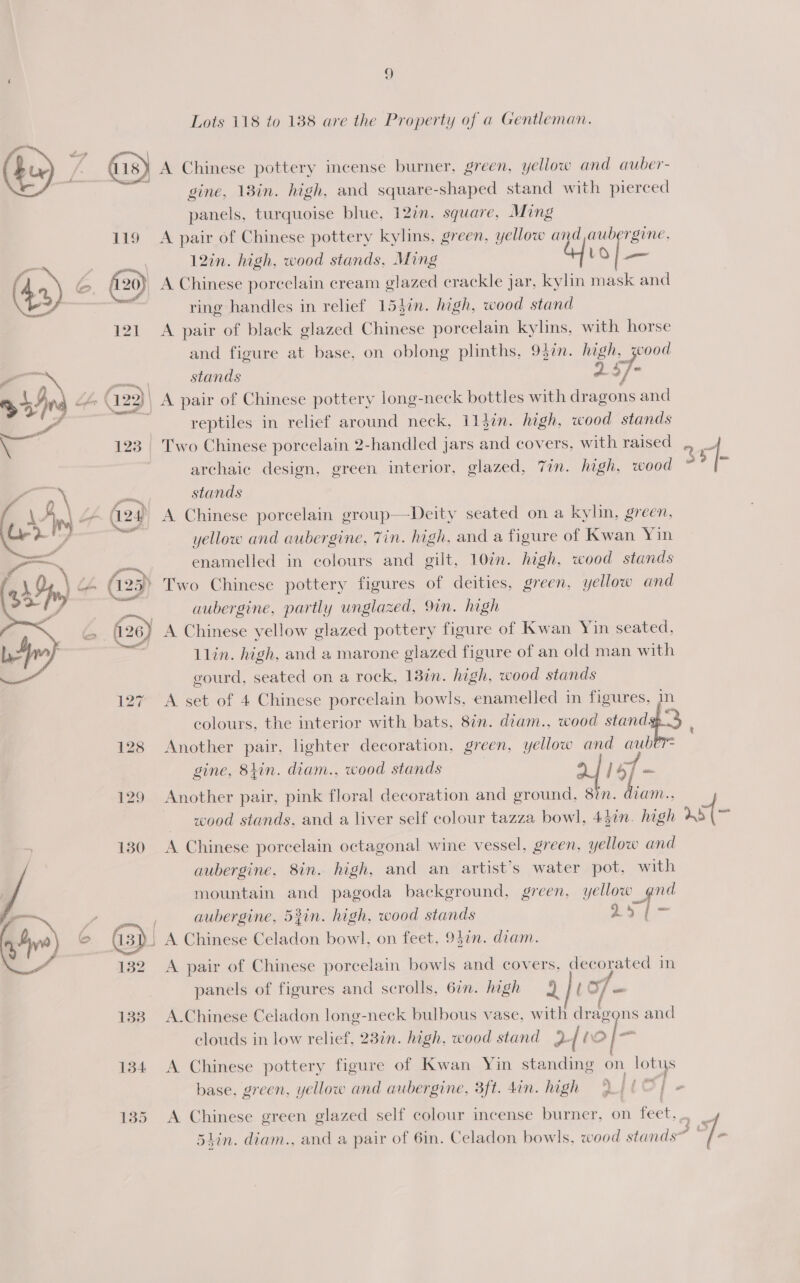 9
Lots 118 to 138 are the Property of a Gentleman.
118 A Chinese pottery incense burner, green, yellow and auber-
gine, 13in. high, and square-shaped stand with pierced
panels, turquoise blue, 12in. square, Ming
119 A pair of Chinese pottery kylins, green, yellow and aubergine,
12in. high, wood stands, Ming 4/10/—
120 A Chinese porcelain cream glazed crackle jar, kylin mask and
ring handles in relief 15½in. high, wood stand
121 A pair of black glazed Chinese porcelain kylins, with horse
and figure at base, on oblong plinths, 9½in. high, wood
stands 25/-
122 A pair of Chinese pottery long-neck bottles with dragons and
reptiles in relief around neck, 11½in. high, wood stands
123 Two Chinese porcelain 2-handled jars and covers, with raised
archaic design, green interior, glazed, 7in. high, wood
stands
124 A Chinese porcelain group—Deity seated on a kylin, green,
yellow and aubergine, 7in. high, and a figure of Kwan Yin
enamelled in colours and gilt, 10in. high, wood stands
125 Two Chinese pottery figures of deities, green, yellow and
aubergine, partly unglazed, 9in. high
126 A Chinese yellow glazed pottery figure of Kwan Yin seated,
11in. high, and a marone glazed figure of an old man with
gourd, seated on a rock, 13in. high, wood stands
127 A set of 4 Chinese porcelain bowls, enamelled in figures, in
colours, the interior with bats, 8in. diam., wood stands
128 Another pair, lighter decoration, green, yellow and auber-
gine, 8½in. diam., wood stands 2/15/-
129 Another pair, pink floral decoration and ground, 8in. diam.,
wood stands, and a liver self colour tazza bowl, 4½in. high 25/-
130 A Chinese porcelain octagonal wine vessel, green, yellow and
aubergine, 8in. high, and an artist's water pot, with
mountain and pagoda background, green, yellow and
aubergine, 5¾in. high, wood stands 25/-
131 A Chinese Celadon bowl, on feet, 9½in. diam.
132 A pair of Chinese porcelain bowls and covers, decorated in
panels of figures and scrolls, 6in. high 2/10/-
133 A.Chinese Celadon long-neck bulbous vase, with dragons and
clouds in low relief, 23in. high, wood stand 2/10/-
134 A Chinese pottery figure of Kwan Yin standing on lotus
base, green, yellow and aubergine, 3ft. 4in. high 2/10/-
135 A Chinese green glazed self colour incense burner, on feet,
5½in. diam., and a pair of 6in. Celadon bowls, wood stands